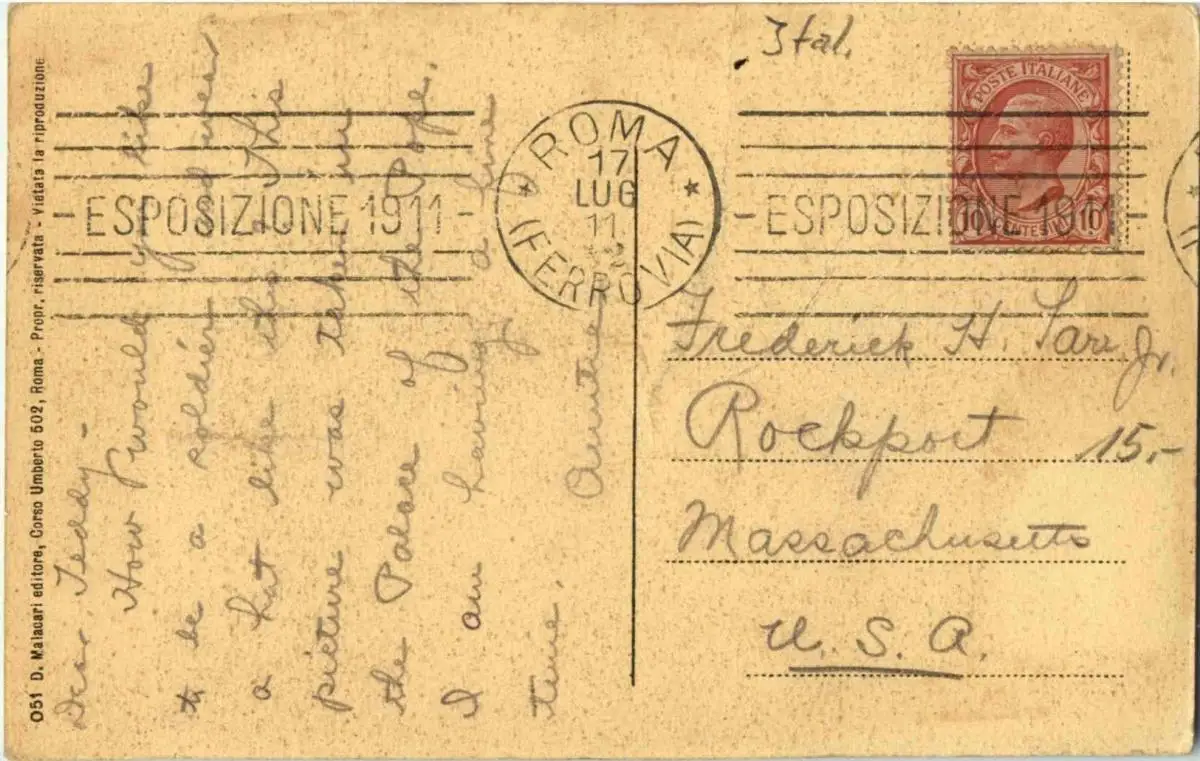 Ital.
POSTE ITALIANE
10 10
ROMA
17
LUG
11
(FERROVIA)
- ESPOSIZIONE 1911 -
- ESPOSIZIONE 1911 -
Frederick H. Jr.
Rockport 15,-
Massachusetts
U. S. A.
Dear Teddy -
How would you like
to be a soldier and wear
a hat like this? This
picture was taken in
the Palace of the Pope.
I am having a fine
time.
Auntie
051 D. Malacari editore, Corso Umberto 502, Roma - Propr. riservata - Vietata la riproduzione